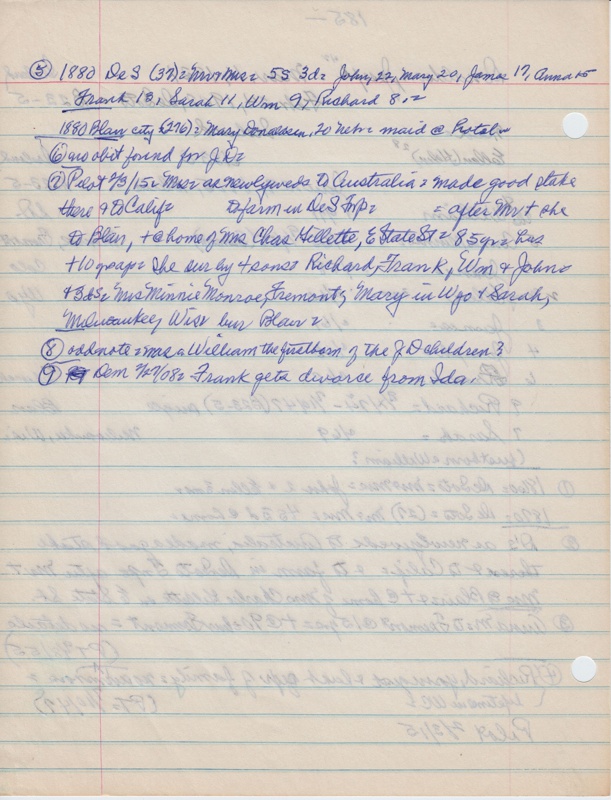 ⑤ 1880 De S (37) = Mr + Mrs = 5S 3d = John, 22, Mary 20, James 17, Anna 15
Frank 13, Sarah 11, Wm 9, Richard 8. =
1880 Blair city (276) = Mary Donaldson, 20 Nebr = maid @ Hotel.
⑥ no obit found for J.D =
⑦ Pilot 2/3/15 = Mrs = as newlyweds to Australia = made good stake
there + to Calif = to farm in DeS Twp = = after Mr + she
to Blair, + @ home of Mrs Chas Gillette, E State St = 85 yr = has
+ 10 = She sur by 4 sons = Richard, Frank, Wm + John =
+ 3ds = Mrs Minnie Monroe, Fremont; Mary in Wyo + Sarah,
Milwaukee, Wis = bur Blair =
⑧ odd note = was a William the firstborn of the J D children?
⑨ Dem 2/27/08 = Frank gets divorce from Ida.